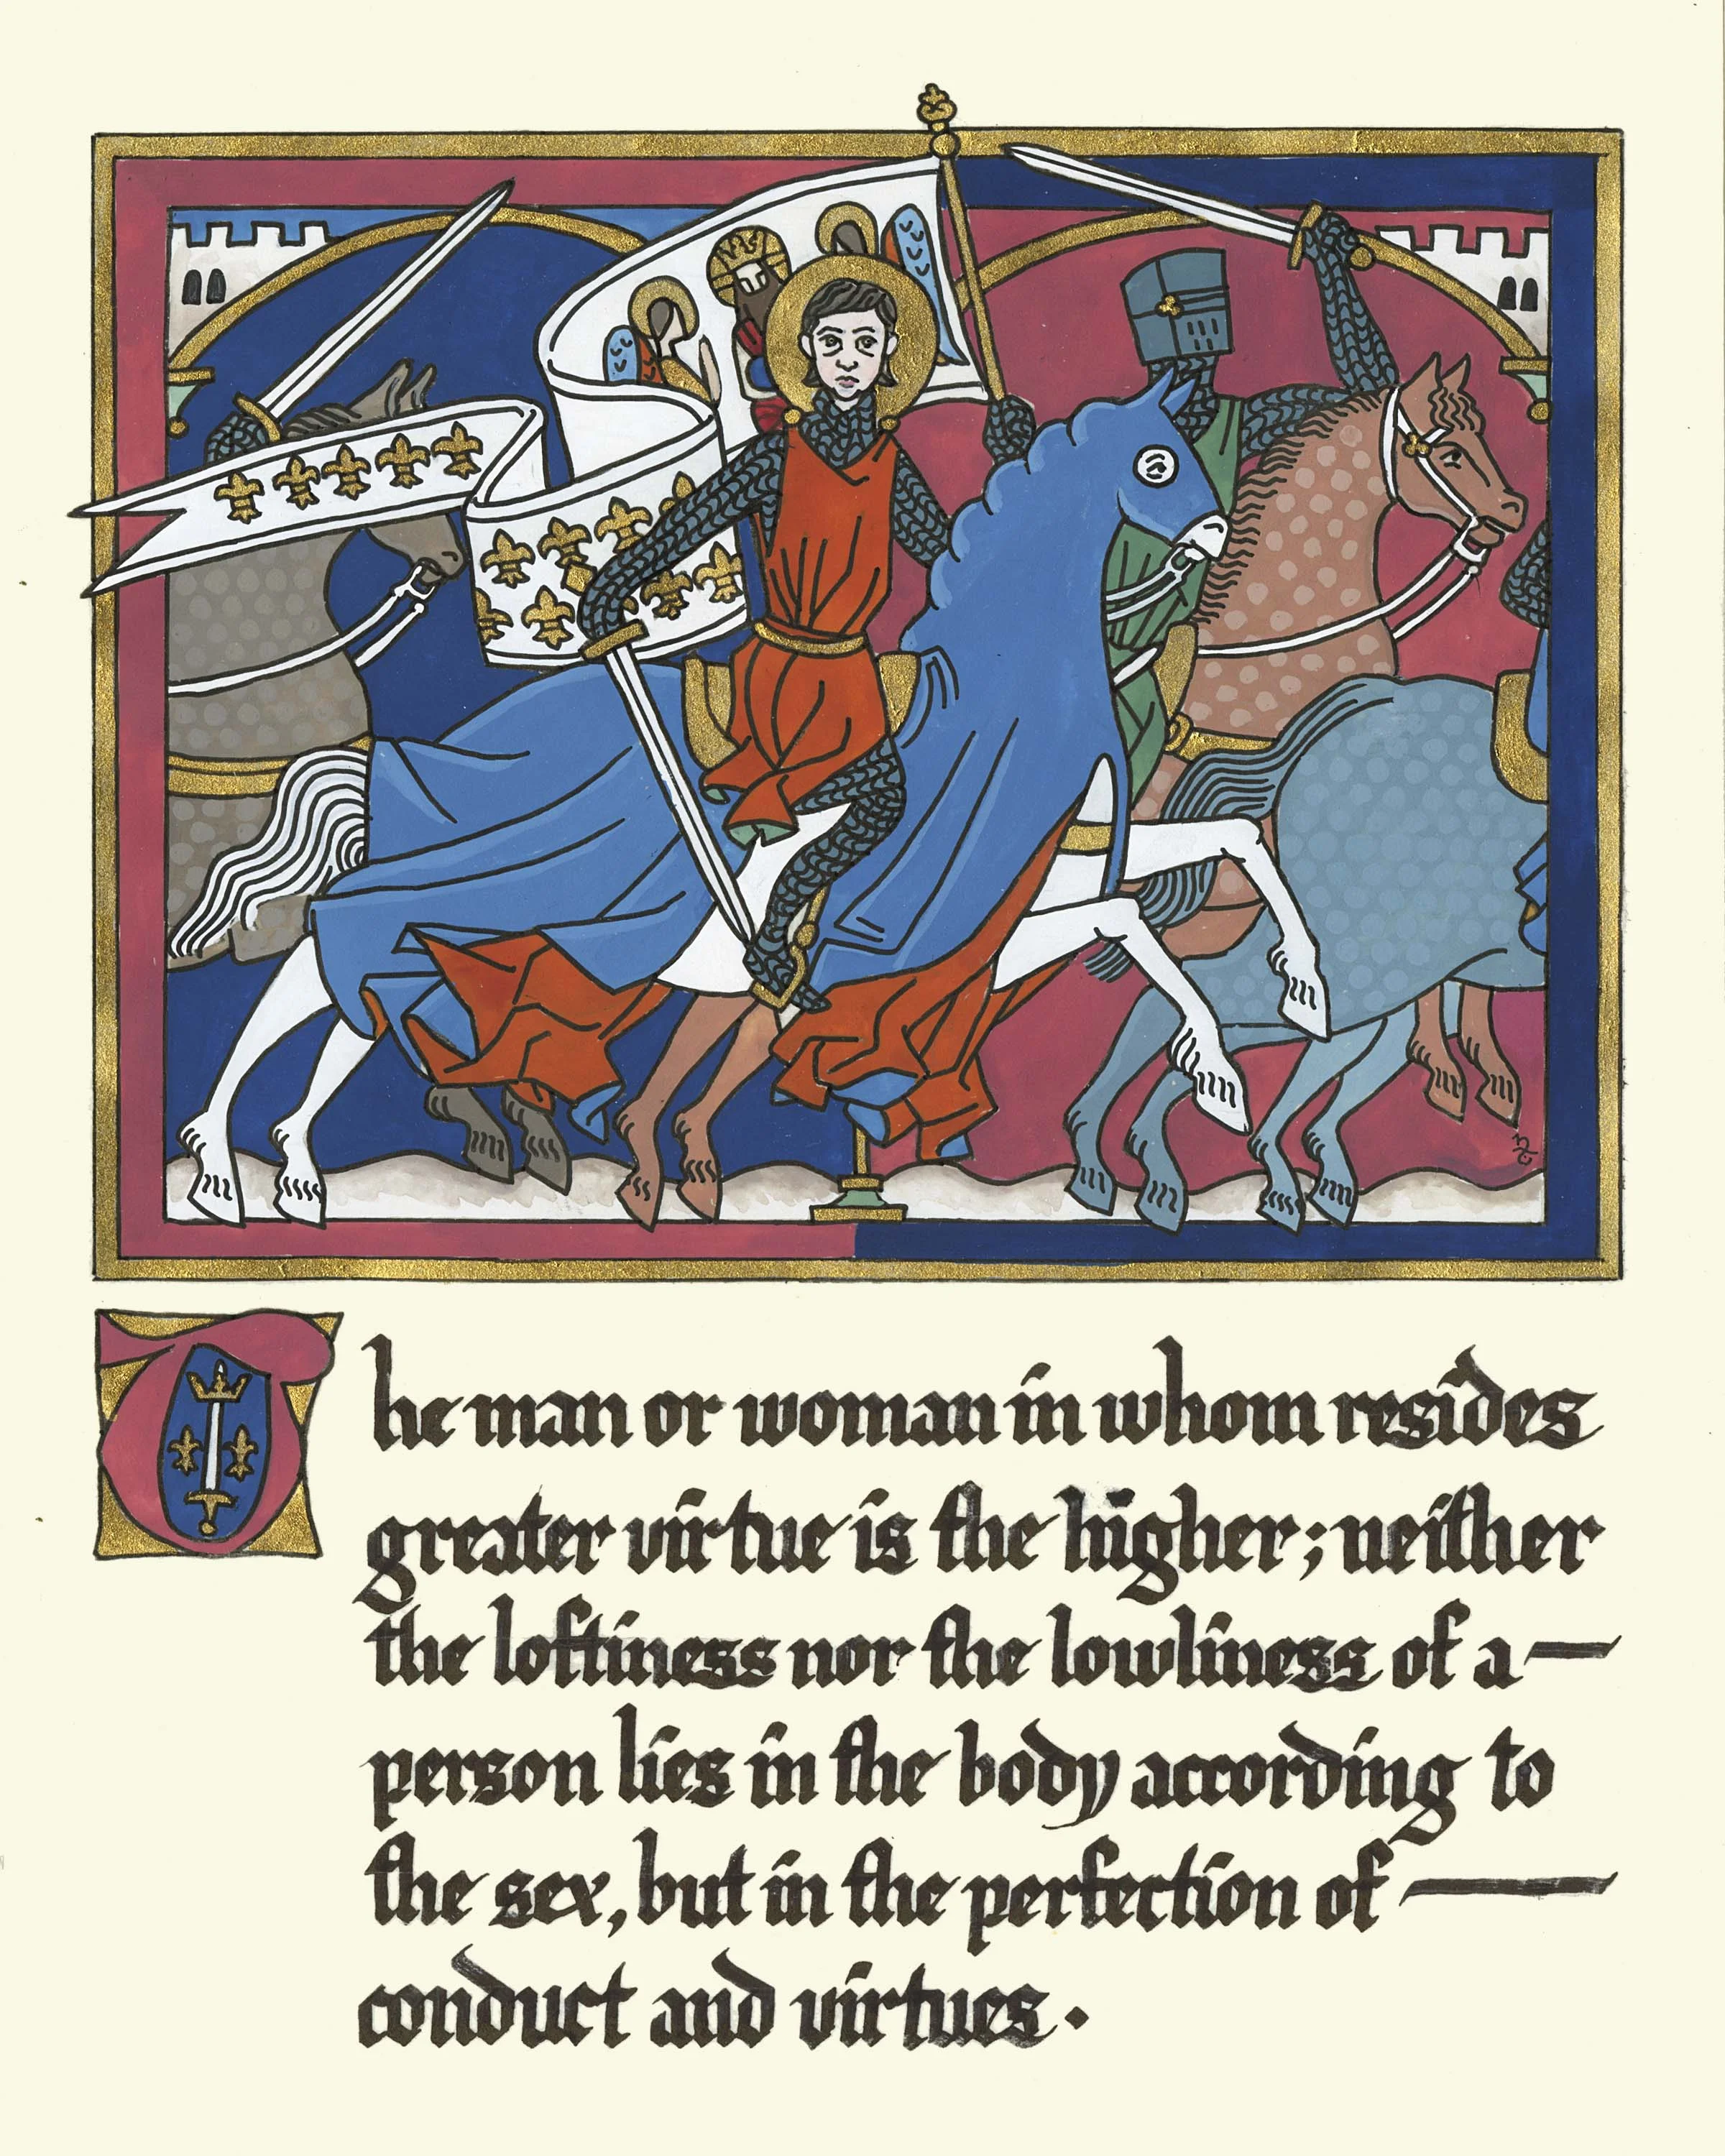 The man or woman in whom resides
greater virtue is the higher; neither
the loftiness nor the lowliness of a—
person lies in the body according to
the sex, but in the perfection of —
conduct and virtues.